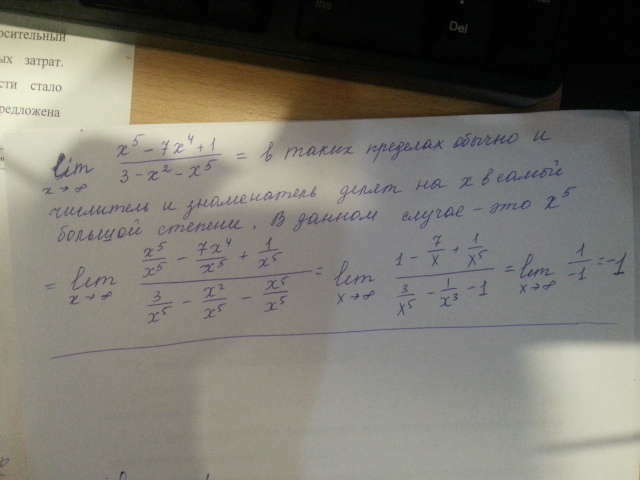 Ins
Del
осительный
ых затрат.
сти стало
редложена
lim x→∞ (x⁵ - 7x⁴ + 1)/(3 - x² - x⁵) = в таких пределах обычно и
числитель и знаменатель делят на x в самой
большой степени. В данном случае - это x⁵
= lim x→∞ (x⁵/x⁵ - 7x⁴/x⁵ + 1/x⁵)/(3/x⁵ - x²/x⁵ - x⁵/x⁵) = lim x→∞ (1 - 7/x + 1/x⁵)/(3/x⁵ - 1/x³ - 1) = lim x→∞ 1/-1 = -1